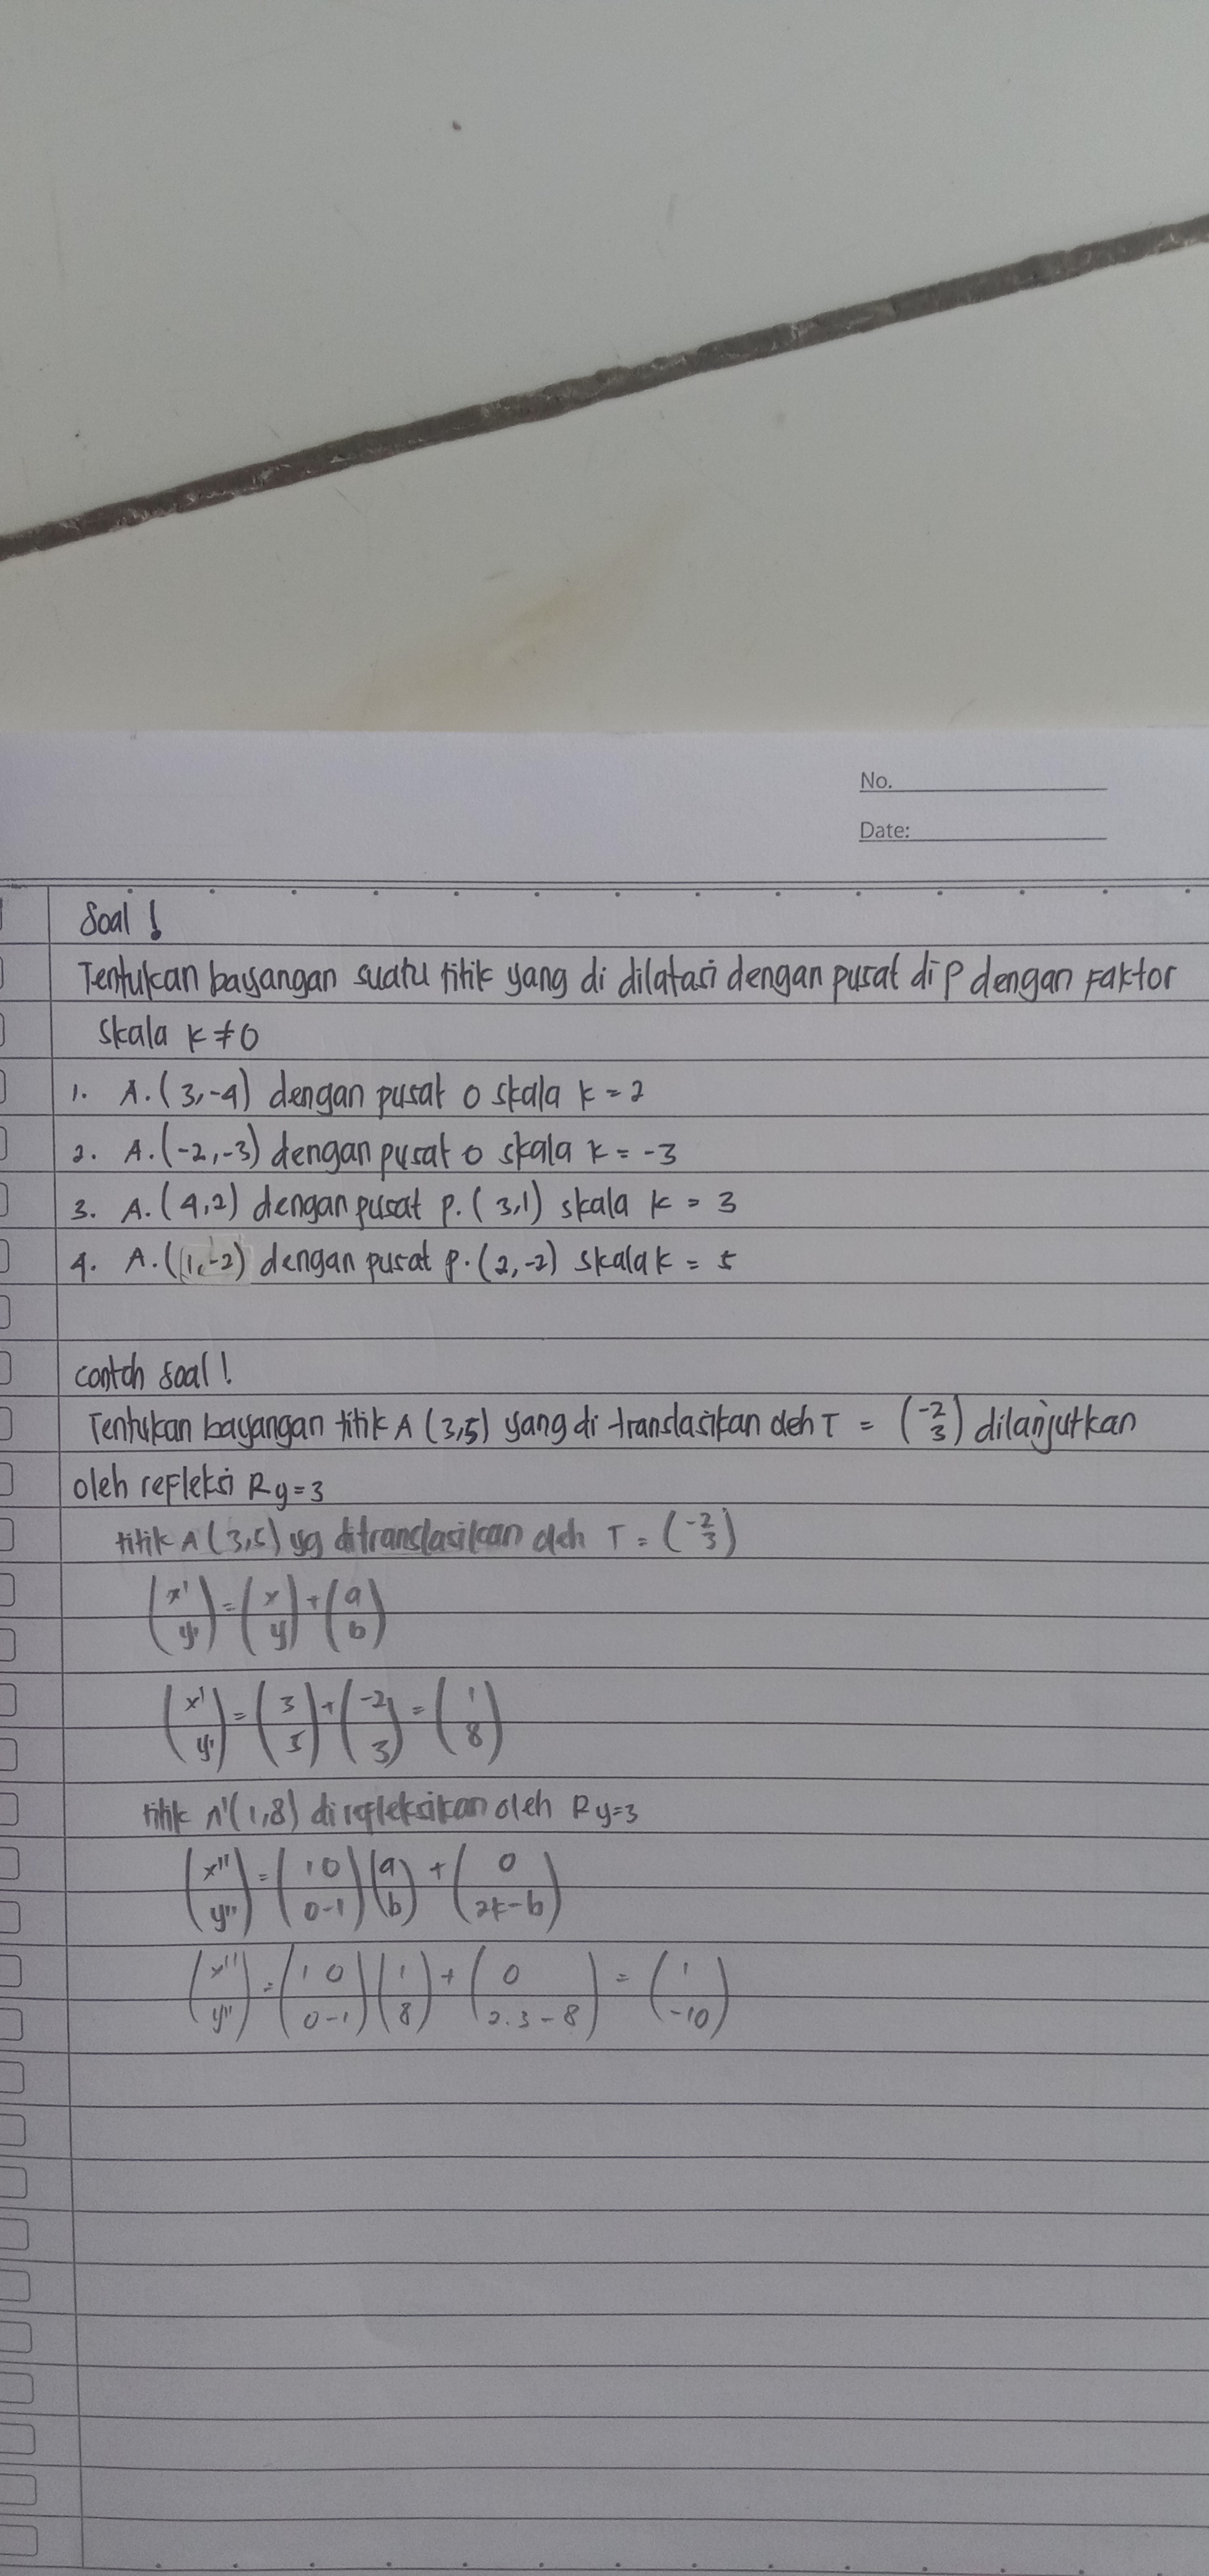 No.
Date:
Soal !
Tentukan bayangan suatu titik yang di dilatasi dengan pusat di P dengan Faktor
skala k ≠ 0
1. A. (3,-4) dengan pusat O skala k = 2
2. A. (-2,-3) dengan pusat O skala k = -3
3. A. (4,2) dengan pusat p. (3,1) skala k = 3
4. A. (1,-2) dengan pusat p. (2,-2) skala k = 5
contoh soal !
Tentukan bayangan titik A (3,5) yang di translasikan oleh T = (-2 3) dilanjutkan
oleh refleksi R y=3
titik A (3,5) yg ditranslasikan oleh T = (-2 3)
(x' y') = (x y) + (a b)
(x' y') = (3 5) + (-2 3) = (1 8)
titik A' (1,8) di refleksikan oleh R y=3
(x'' y'') = (1 0 0 -1) (a b) + (0 2k-b)
(x'' y'') = (1 0 0 -1) (1 8) + (0 2.3-8) = (1 -10)